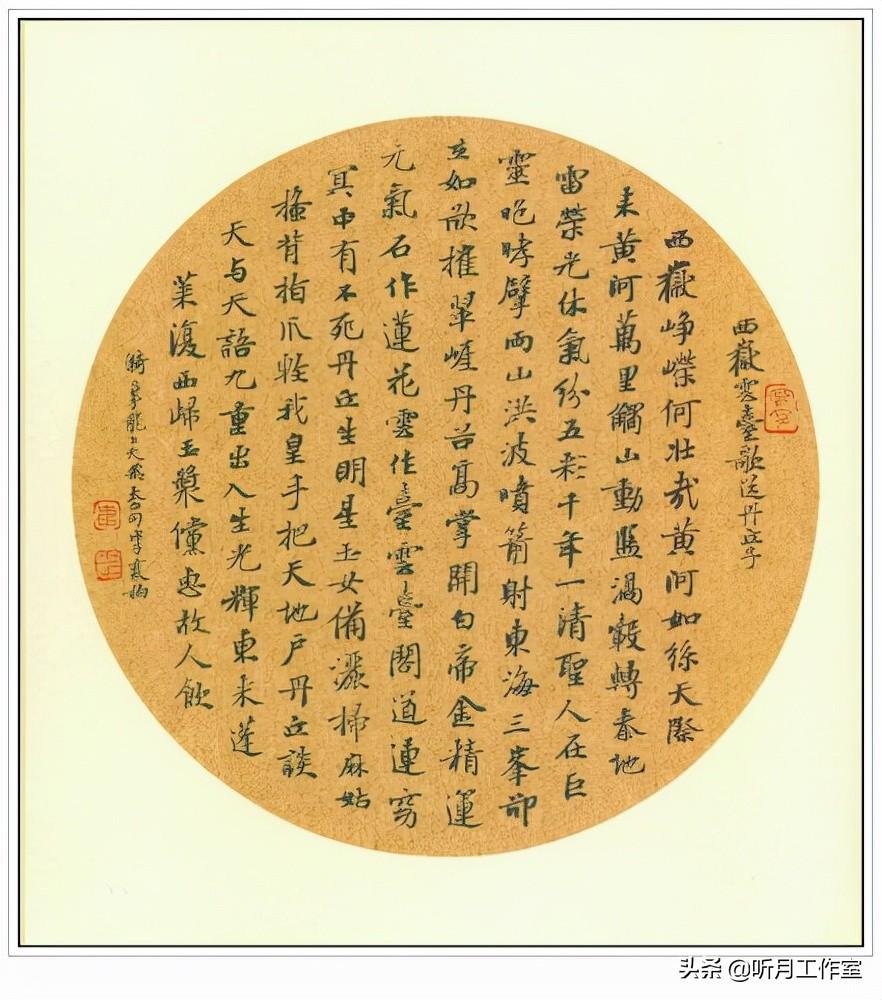 西嶽雲臺歌送丹丘子
西嶽崢嶸何壯哉黃河如絲天際
来黃河萬里觸山動盤渦轂轉秦地
雷榮光休氣紛五彩千年一清聖人在巨
靈咆哮擘兩山洪波噴箭射東海三峯卻
立如欲摧翠崕丹谷高掌開白帝金精運
元氣石作蓮花雲作臺雲臺閣道連窈
冥中有不死丹丘生明星玉女備灑掃麻姑
搔背指爪輕我皇手把天地戶丹丘談
天与天語九重出入生光輝東来蓬
莱復西歸玉漿儻惠故人飲
騎二茅龍上天飛
头条 @听月工作室